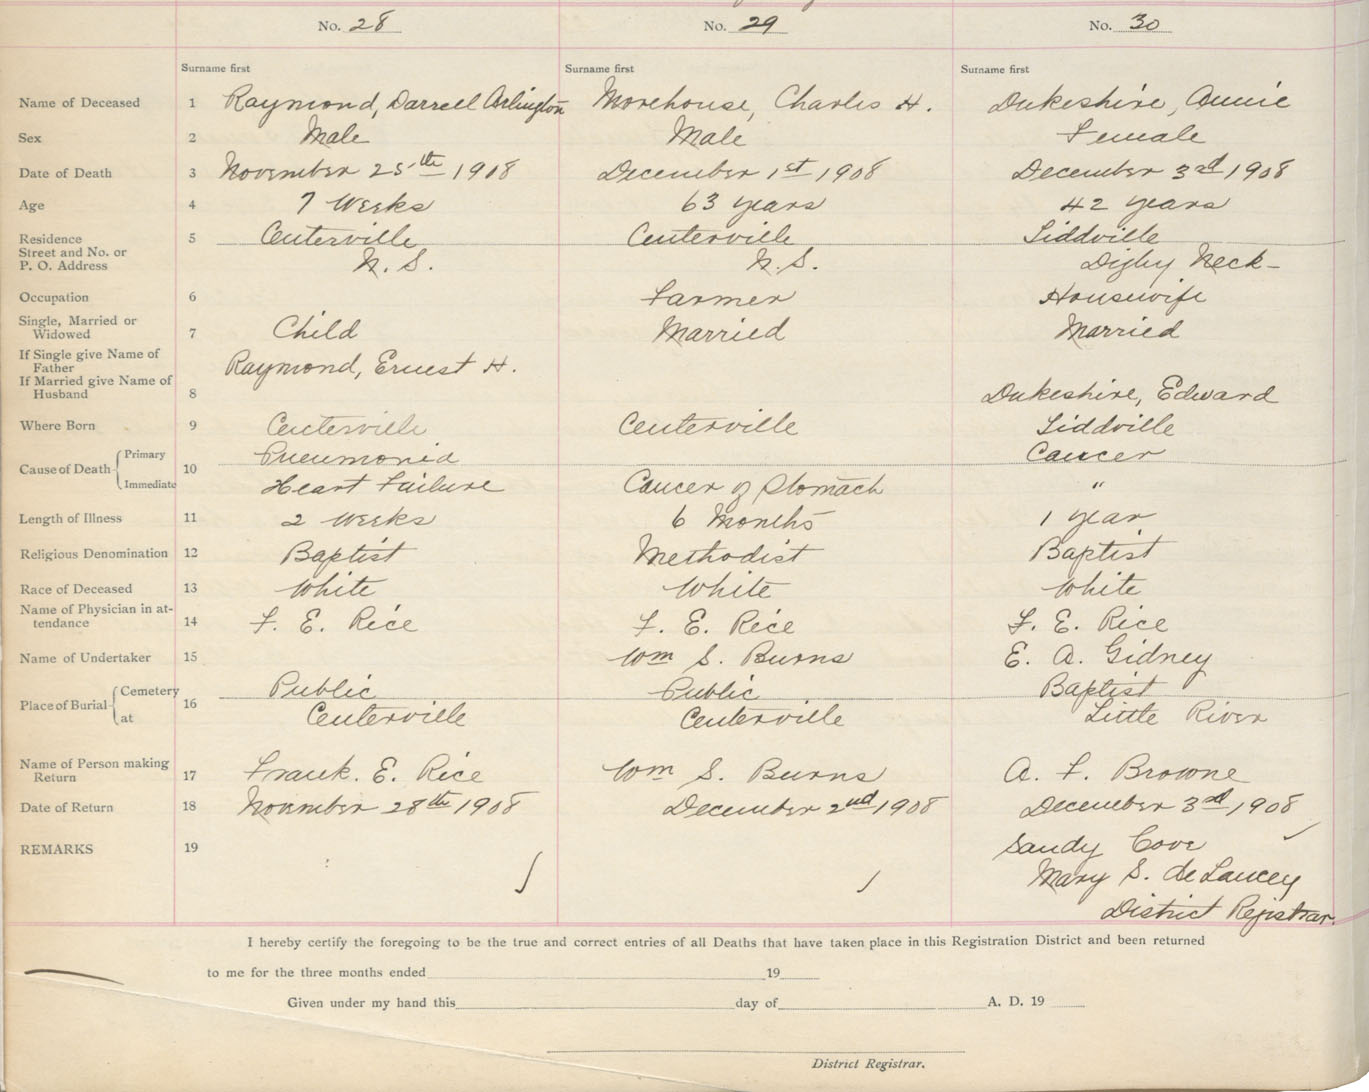 No. 28 No. 29 No. 30
Surname first Surname first Surname first
Name of Deceased 1 Raymond, Darrell Arlington Morehouse, Charles H. Dukeshire, Annie
Sex 2 Male Male Female
Date of Death 3 November 25th 1908 December 1st 1908 December 3rd 1908
Age 4 7 Weeks 63 years 42 years
Residence 5 Centerville Centerville Liddville
Street and No. or
P. O. Address N. S. N. S. Digby Neck-
Occupation 6 Farmer Housewife
Single, Married or
Widowed 7 Child Married Married
If Single give Name of
Father Raymond, Ernest H.
If Married give Name of
Husband 8 Dukeshire, Edward
Where Born 9 Centerville Centerville Liddville
Cause of Death 10 Primary Pneumonia Cancer
Immediate Heart Failure Cancer of Stomach "
Length of Illness 11 2 Weeks 6 Months 1 year
Religious Denomination 12 Baptist Methodist Baptist
Race of Deceased 13 White White White
Name of Physician in at-
tendance 14 F. E. Rice F. E. Rice F. E. Rice
Name of Undertaker 15 Wm S. Burns E. A. Gidney
Place of Burial 16 Cemetery Public Public Baptist
at Centerville Centerville Little River
Name of Person making
Return 17 Frank. E. Rice Wm S. Burns A. F. Browne
Date of Return 18 November 28th 1908 December 2nd 1908 December 3rd 1908
REMARKS 19 Sandy Cove
Mary S. deLancey
District Registrar.
I hereby certify the foregoing to be the true and correct entries of all Deaths that have taken place in this Registration District and been returned
to me for the three months ended 19
Given under my hand this day of A. D. 19
District Registrar.